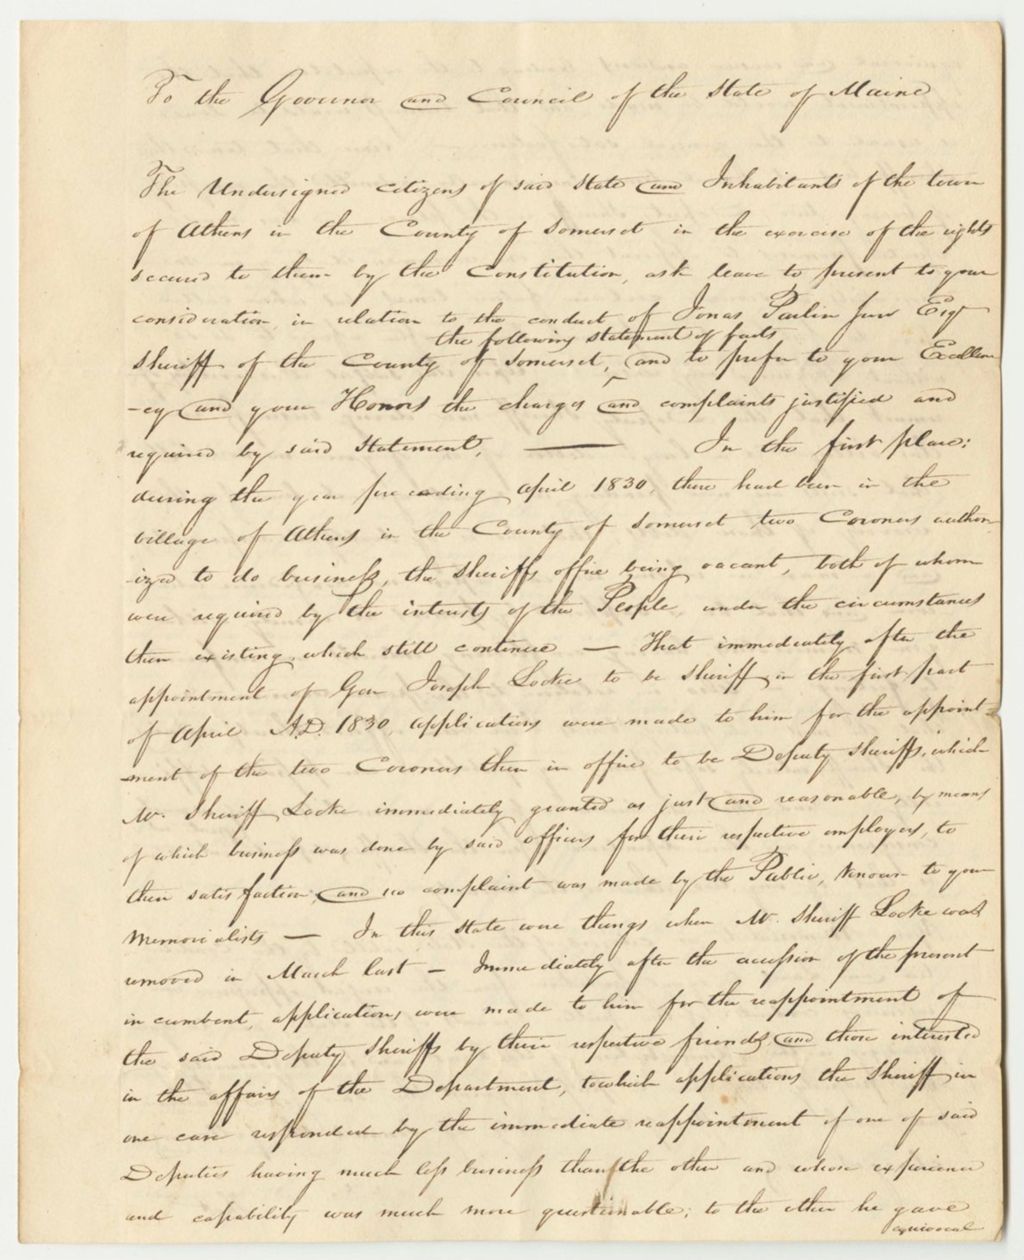 To the Governor and Council of the State of Maine
The Undersigned citizens of said State and Inhabitants of the town
of Athens in the County of Somerset in the exercise of the rights
secured to them by the Constitution, ask leave to present to your
consideration in relation to the conduct of Jonas Parlin Junr Esqr
the following statement of facts
Sheriff of the County of Somerset, ^ and to prefer to your Excellen
-cy and your Honors the charges and complaints justified and
required by said Statement. — In the first place:
during the year preceding April 1830, there had been in the
village of Athens in the County of Somerset two Coroners author
-ized to do business, the Sheriffs office being vacant, both of whom
were required by the interests of the People, under the circumstances
then existing, which still continue — That immediately after the
appointment of Gen Joseph Locke to be Sheriff in the first part
of April A.D. 1830, applications were made to him for the appoint
-ment of the two Coroners then in office to be Deputy Sheriffs, which
Mr. Sheriff Locke immediately granted as just and reasonable, by means
of which business was done by said officers for their respective employers, to
their satisfaction, and no complaint was made by the Public, known to your
Memorialists — In this state were things when Mr. Sheriff Locke was
removed in March last — Immediately after the accession of the present
incumbent, applications were made to him for the reappointment of
the said Deputy Sheriffs by their respective friends and those interested
in the affairs of the Department, to which applications the Sheriff in
one case responded by the immediate reappointment of one of said
Deputies having much less business than the other and whose experience
and capability was much more questionable; to the other he gave
equivocal